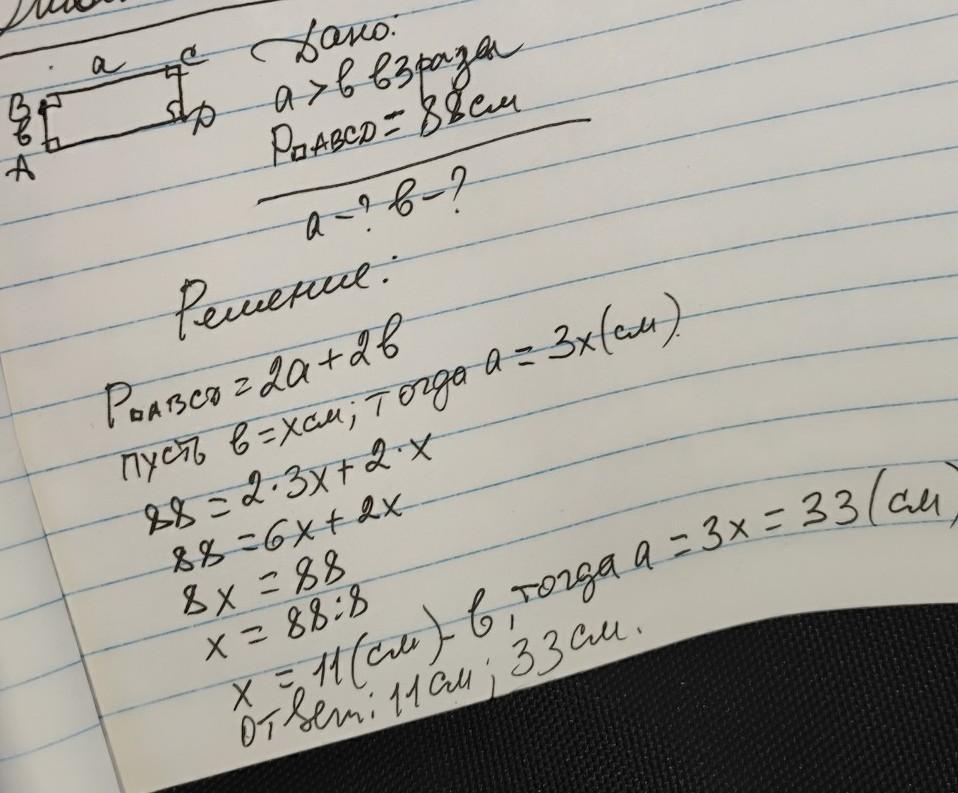 a
B
C
в
A
D
Дано:
a > в в 3 раза
P▫ABCD = 88 см
a - ? в - ?
Решение:
P▫ABCD = 2a + 2в
пусть в = x см; тогда a = 3x (см)
88 = 2·3x + 2·x
88 = 6x + 2x
8x = 88
x = 88:8
x = 11 (см) - в, тогда a = 3x = 33 (см)
Ответ: 11 см; 33 см.